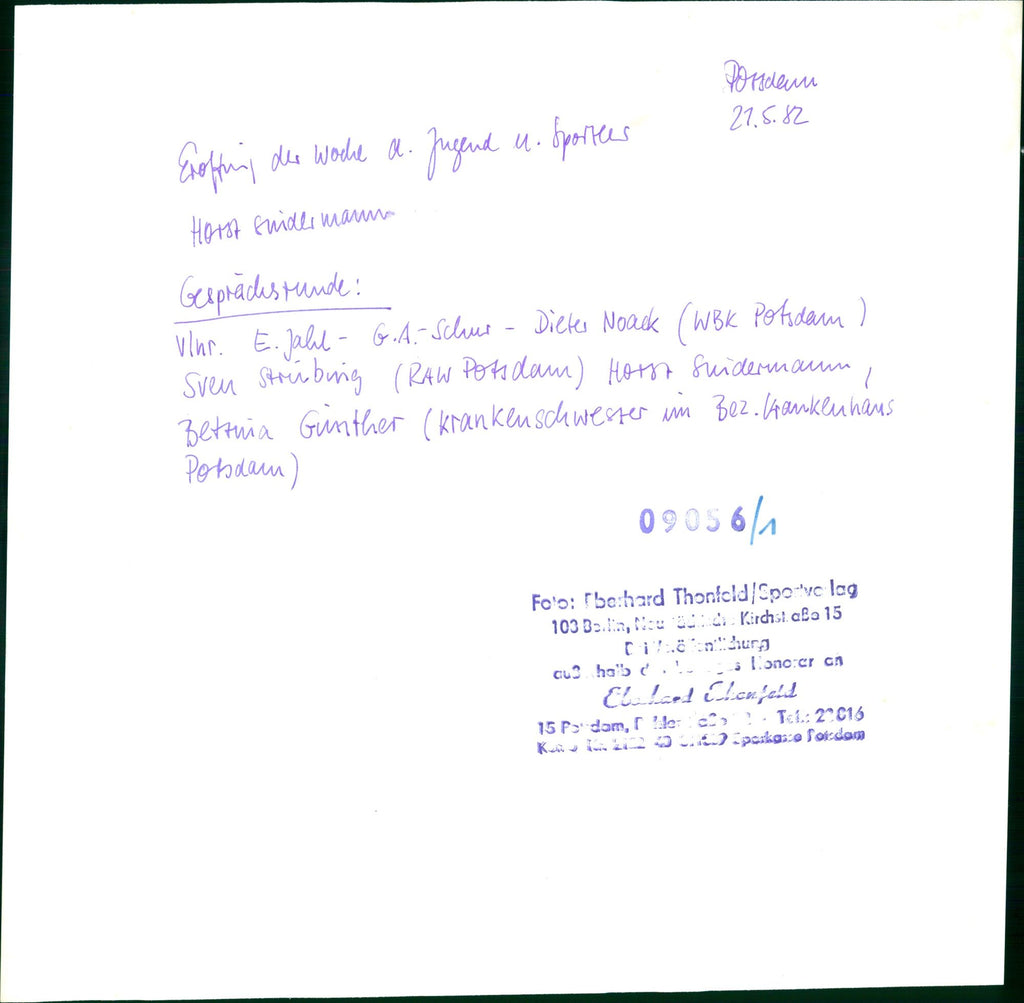 Potsdam
21.5.82
Eröffnung der Woche d. Jugend u. Sportler
Horst Sindermann
Gesprächsrunde:
Vlnr. E. Jahl - G.A.-Schur - Dieter Noack (WBK Potsdam)
Sven Strübing (RAW Potsdam) Horst Sindermann,
Bettina Günther (Krankenschwester im Bez. Krankenhaus
Potsdam)
09056/1
Foto: Eberhard Thonfeld/Sportverlag
108 Berlin, Kirchstraße 15
Bei Veröffentlichung
außerhalb Honorar an
Eberhard Thonfeld
15 Potsdam, Tel.:
Sparkasse Potsdam